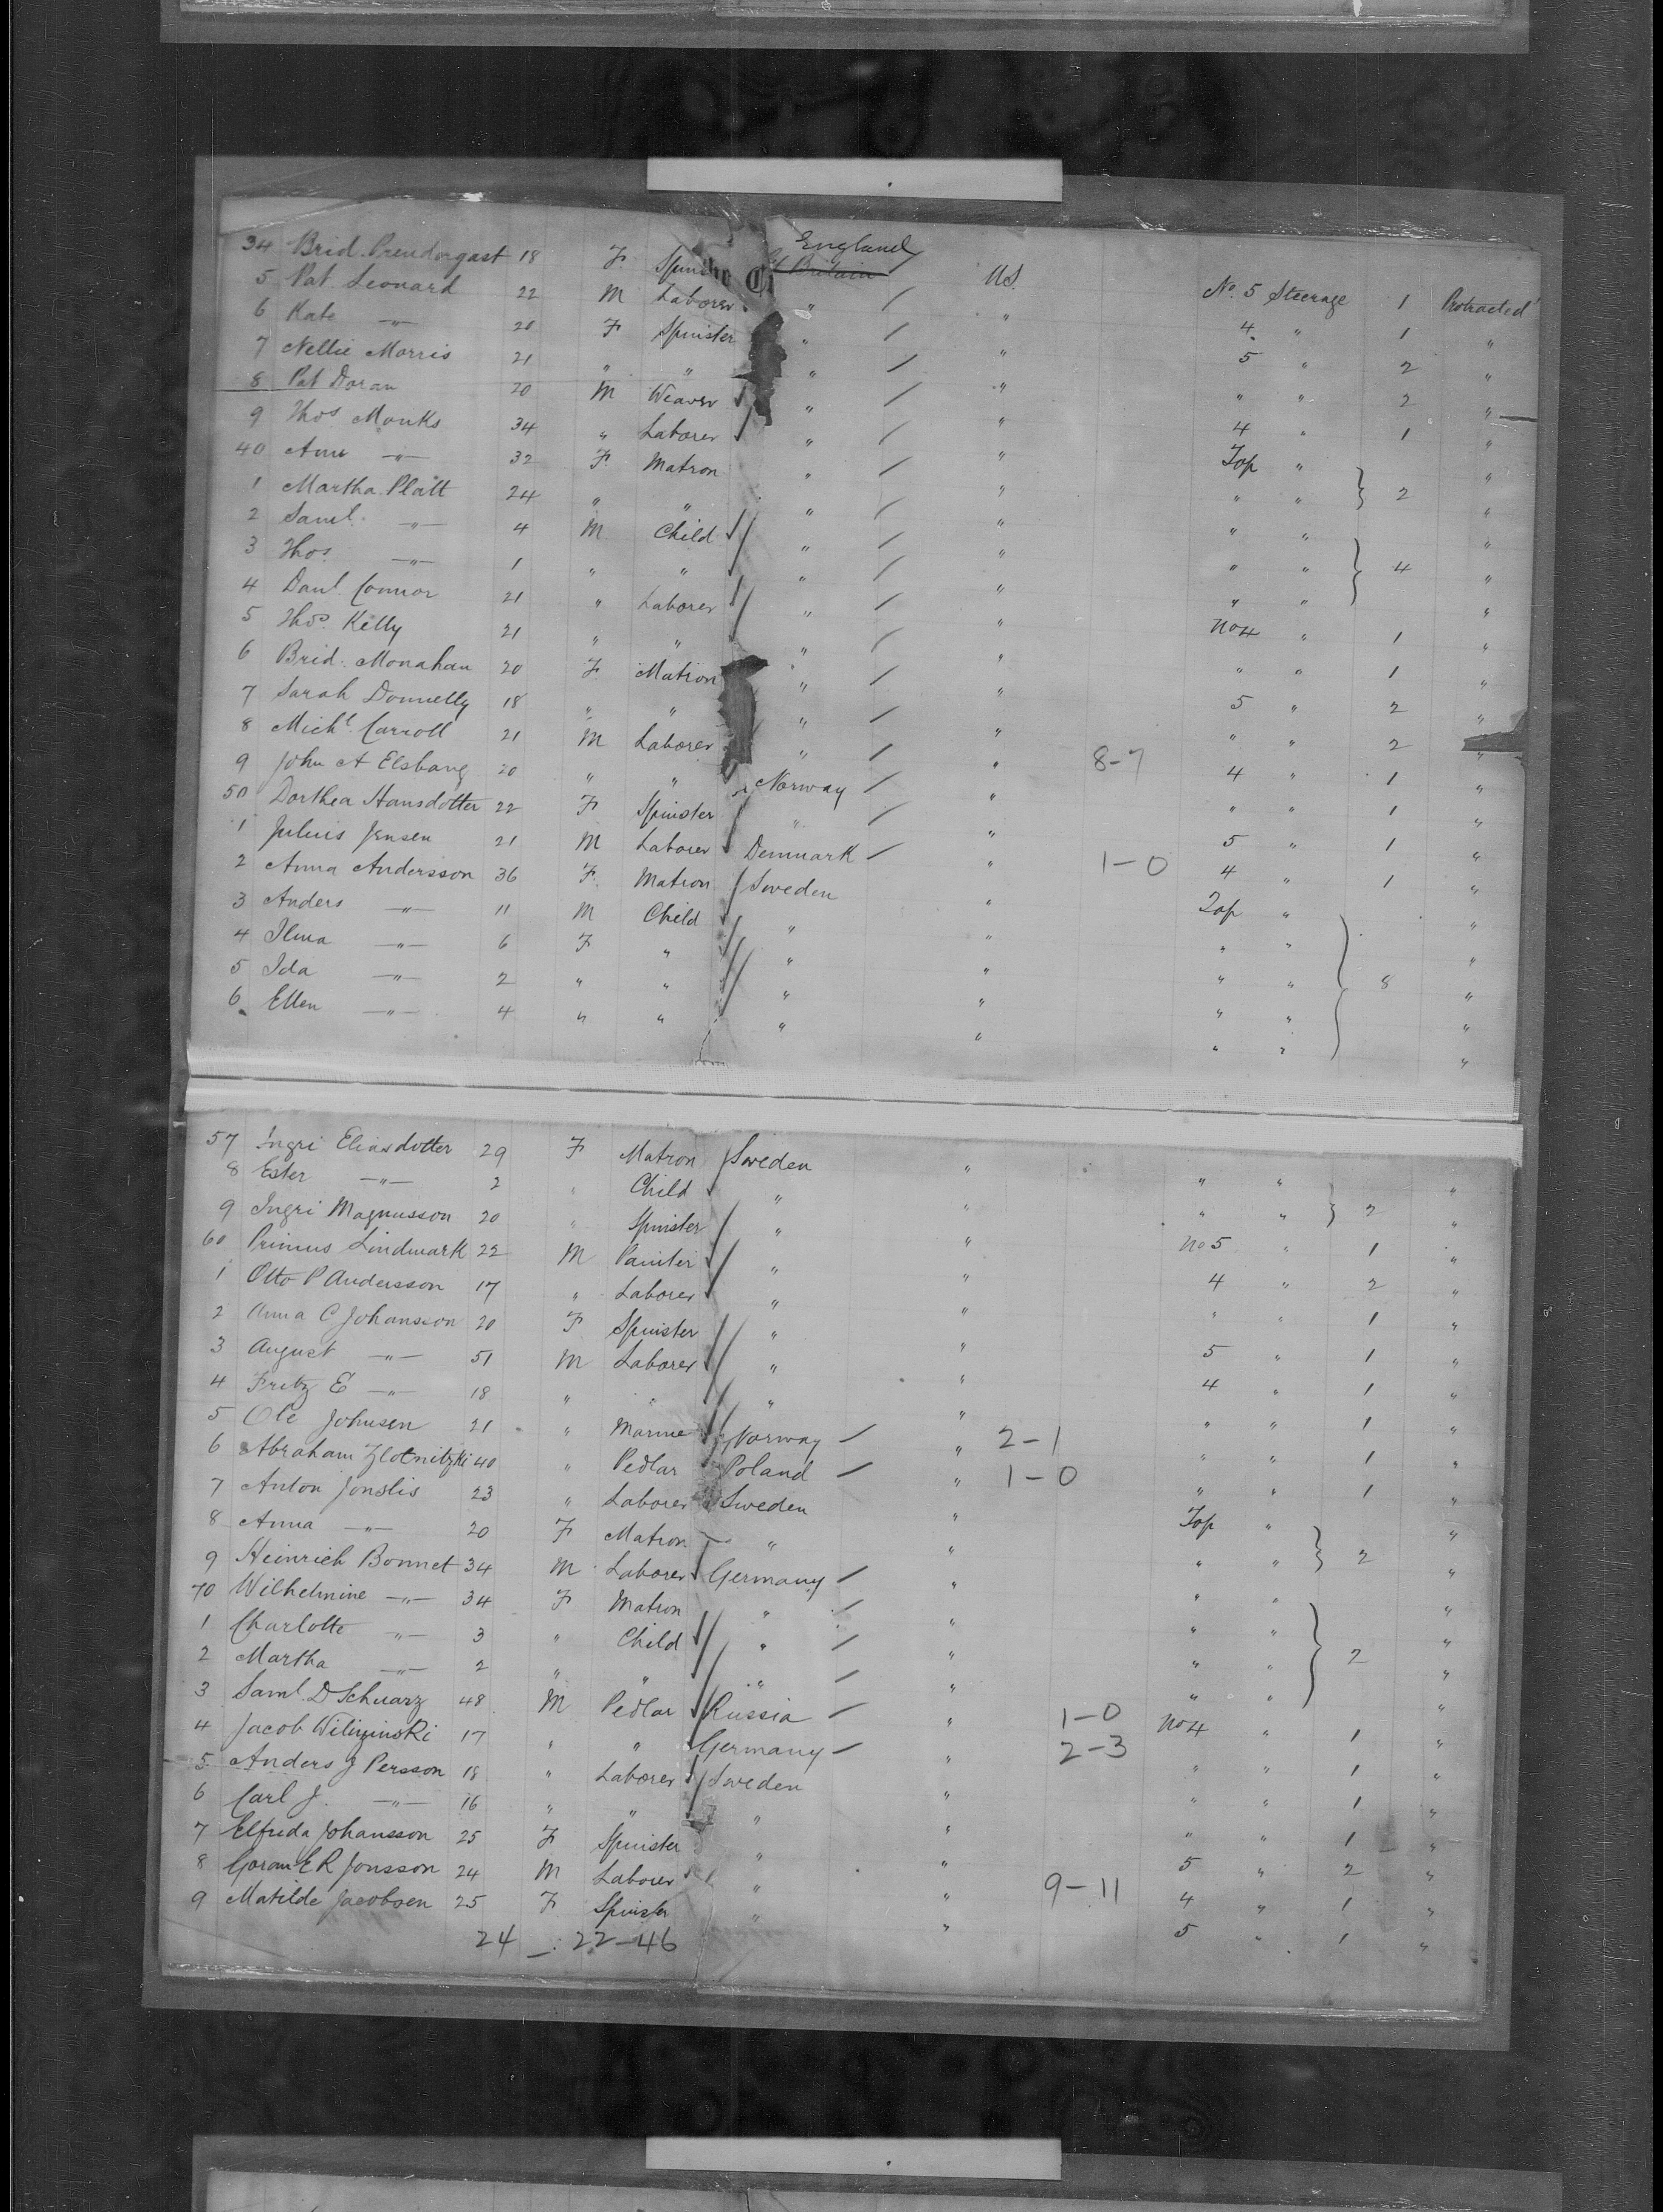 34 Brid. Prendergast 18 F. Spinster England Gt Britain U.S. No. 5 Steerage 1 Protracted
5 Pat Leonard 22 M Laborer " / " 4 " 1 "
6 Kate —"— 20 F Spinster " / " 5 " 2 "
7 Nellie Morris 21 " " " / " " " 2 "
8 Pat Doran 20 M Weaver " / " 4 " 1 "
9 Thos Monks 34 " Laborer " / " Top " } 2 "
40 Ann —"— 32 F Matron " / " " " "
1 Martha Platt 24 " " " / " " " } 4 "
2 Saml. —"— 4 M Child " / " " " "
3 Thos —"— 1 " " " / " " " "
4 Danl. Connor 21 " Laborer " / " No 4 " 1 "
5 Thos. Kelly 21 " " " / " " " 1 "
6 Brid. Monahan 20 F. Matron " / " 5 " 2 "
7 Sarah Donnelly 18 " " " / " " " 2 "
8 Michl. Carroll 21 M Laborer " / " 8-7 4 " 1 "
9 John A Elsbang 20 " " Norway / " " " 1 "
50 Dorthea Hansdotter 22 F Spinster " / " 5 " 1 "
1 Julius Jensen 21 M Laborer Denmark / " 1-0 4 " 1 "
2 Anna Andersson 36 F. Matron Sweden " Top " } 8 "
3 Anders —"— 11 M Child " " " " "
4 Ilma —"— 6 F " " " " " "
5 Ida —"— 2 " " " " " " "
6 Ellen —"— 4 " " " " " " "
57 Ingri Eliasdotter 29 F Matron Sweden " " " } 2 "
8 Ester —"— 2 " Child " " " " "
9 Ingri Magnusson 20 " Spinster " " No 5 " 1 "
60 Primus Lindmark 22 M Painter " " 4 " 2 "
1 Otto P Andersson 17 " Laborer " " " " 1 "
2 Anna C Johansson 20 F Spinster " " 5 " 1 "
3 August —"— 51 M Laborer " " 4 " 1 "
4 Fritz E —"— 18 " " " " " " 1 "
5 Ole Johnsen 21 " Marine Norway / " 2-1 " " 1 "
6 Abraham Zlotnitzki 40 " Pedlar Poland / " 1-0 " " 1 "
7 Anton Jonslis 23 " Laborer Sweden " Top " } 2 "
8 Anna —"— 20 F Matron " " " " "
9 Heinrich Bonnet 34 M Laborer Germany / " " " } 2 "
70 Wilhelmine —"— 34 F Matron " / " " " "
1 Charlotte —"— 3 " Child " / " " " "
2 Martha —"— 2 " " " / " " " "
3 Saml. D Schwarz 48 M Pedlar Russia / " 1-0 No 4 " 1 "
4 Jacob 17 " " Germany / " 2-3 " " 1 "
5 Anders J Persson 18 " Laborer Sweden " " " 1 "
6 Carl J. —"— 16 " " " " " " 1 "
7 Elfrida Johansson 25 F Spinster " " 5 " 2 "
8 Goran E R Jonsson 24 M Laborer " " 9-11 4 " 1 "
9 Matilde Jacobsen 25 F Spinster " " 5 " 1 "
24 — 22-46